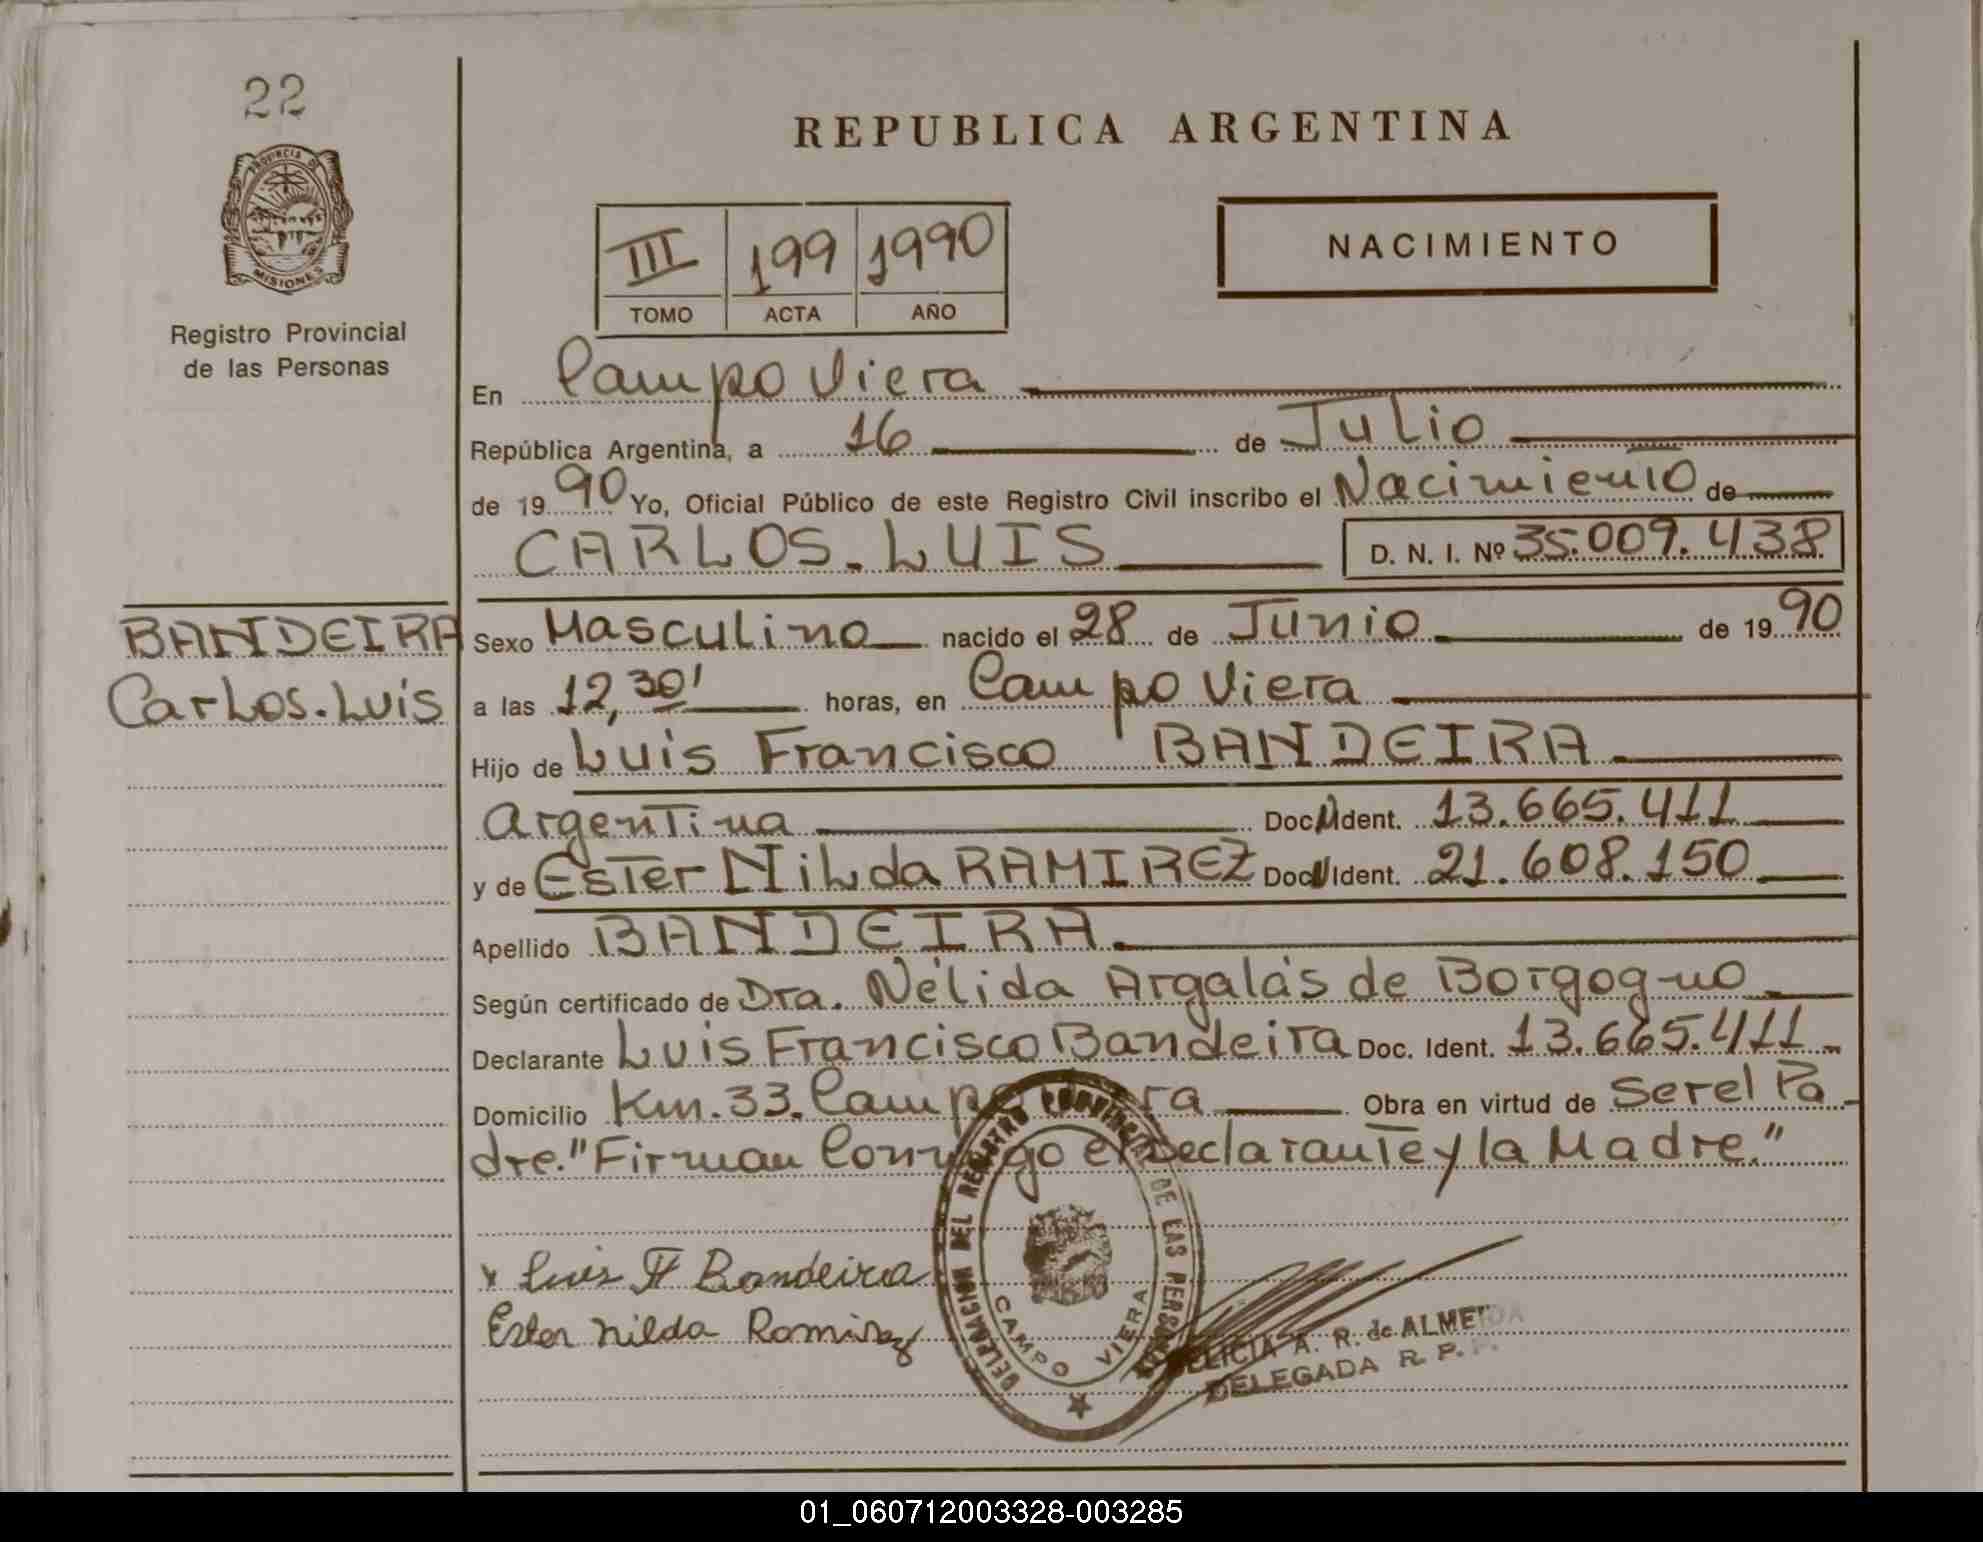 22
PROVINCIA DE
MISIONES
Registro Provincial
de las Personas
REPUBLICA ARGENTINA
III 199 1990
TOMO ACTA AÑO
NACIMIENTO
En Campo Viera
República Argentina, a 16 de Julio
de 1990 Yo, Oficial Público de este Registro Civil inscribo el Nacimiento de
CARLOS. LUIS D. N. I. Nº 35.009.438
BANDEIRA
Carlos. Luis
Sexo Masculino nacido el 28 de Junio de 1990
a las 12,30' horas, en Campo Viera
Hijo de Luis Francisco BANDEIRA
Argentina Doc. Ident. 13.665.411
y de Ester Nilda RAMIREZ Doc. Ident. 21.608.150
Apellido BANDEIRA
Según certificado de Dra. Nélida Argalás de Borgogno
Declarante Luis Francisco Bandeira Doc. Ident. 13.665.411
Domicilio Km. 33. Campo Viera Obra en virtud de Ser el Pa
dre. "Firman Conmigo el Declarante y la Madre."
x Luis F Bandeira
Ester Nilda Ramirez
DELEGACION DEL REGISTRO PROVINCIAL DE LAS PERSONAS
CAMPO VIERA
FELICIA A. R. de ALMEIDA
DELEGADA R. P. P.
01_060712003328-003285